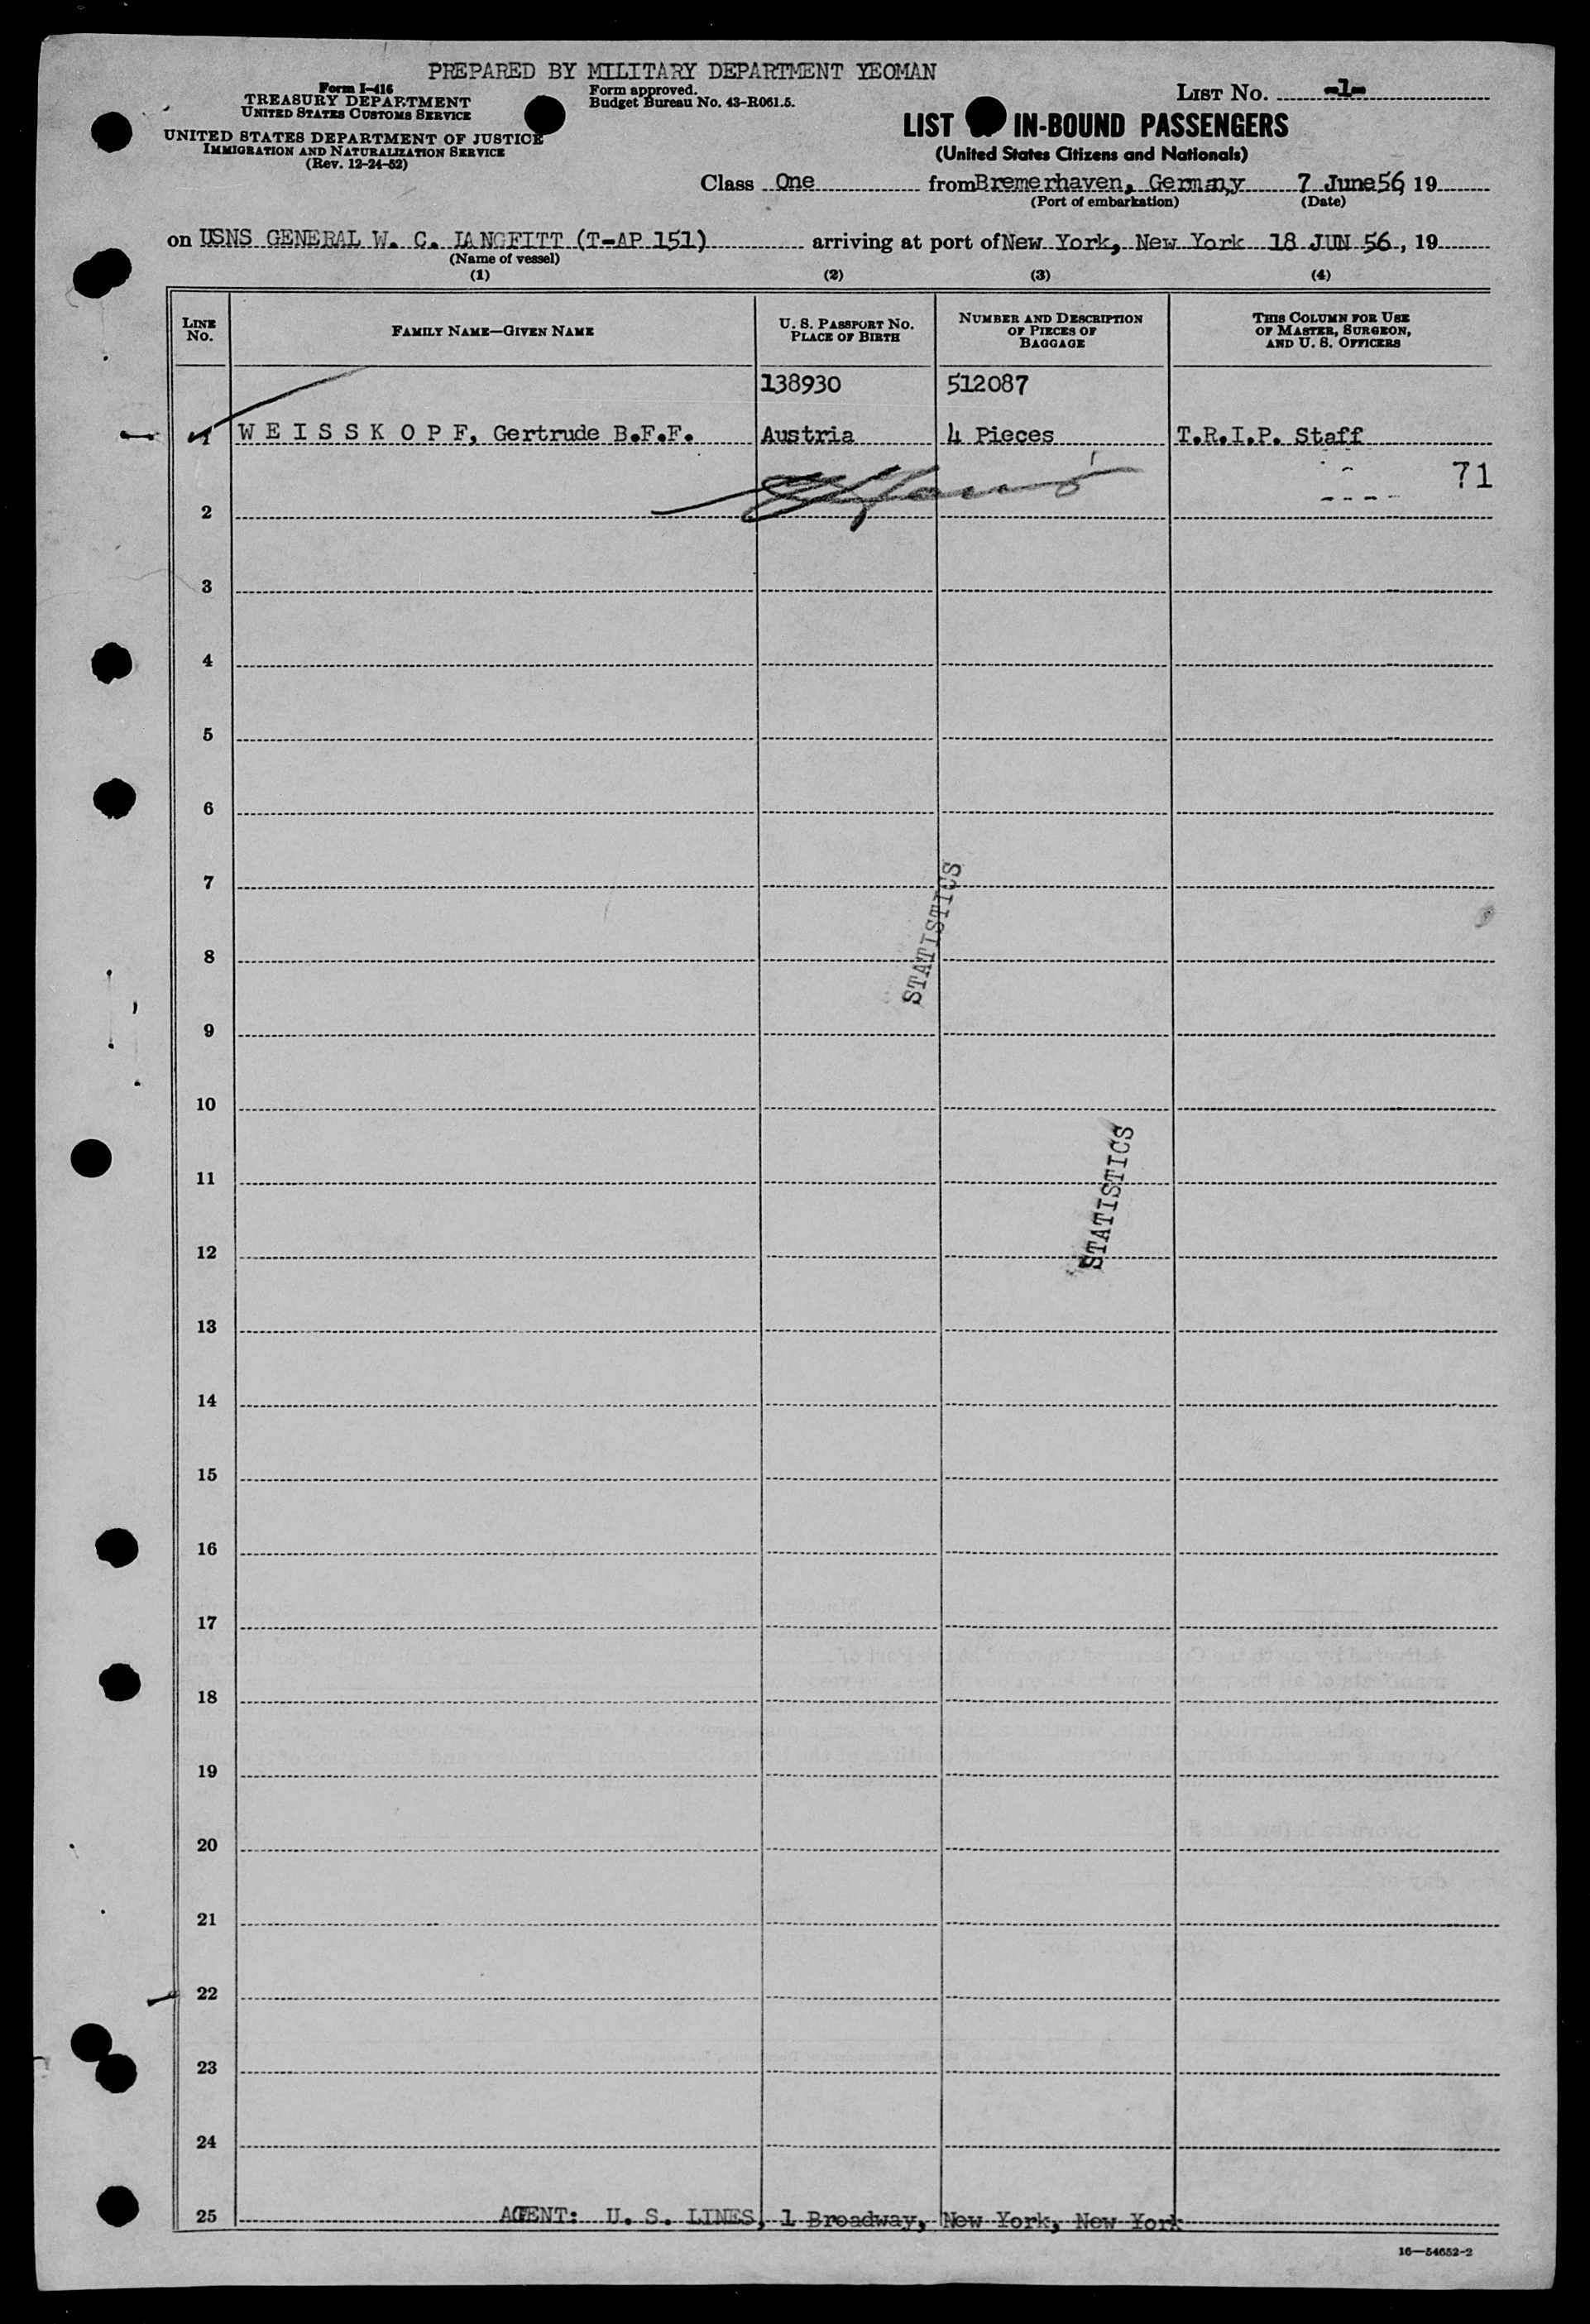 PREPARED BY MILITARY DEPARTMENT YEOMAN
Form I-416
TREASURY DEPARTMENT
UNITED STATES CUSTOMS SERVICE
UNITED STATES DEPARTMENT OF JUSTICE
IMMIGRATION AND NATURALIZATION SERVICE
(Rev. 12-24-52)
Form approved.
Budget Bureau No. 43-R061.5.
LIST No. -1-
LIST IN-BOUND PASSENGERS
(United States Citizens and Nationals)
Class One from Bremerhaven, Germany 7 June 56, 19
(Port of embarkation) (Date)
on USNS GENERAL W. C. LANGFITT (T-AP 151) arriving at port of New York, New York 18 JUN 56, 19
(Name of vessel)
(1) (2) (3) (4)
LINE No. FAMILY NAME—GIVEN NAME U. S. PASSPORT NO. PLACE OF BIRTH NUMBER AND DESCRIPTION OF PIECES OF BAGGAGE THIS COLUMN FOR USE OF MASTER, SURGEON, AND U. S. OFFICERS
138930 512087
1 W E I S S K O P F, Gertrude B.F.F. Austria 4 Pieces T.R.I.P. Staff
71
2
3
4
5
6
7
STATISTICS
8
9
10
11
STATISTICS
12
13
14
15
16
17
18
19
20
21
22
23
24
25 AGENT: U. S. LINES, 1 Broadway, New York, New York
16—54652-2